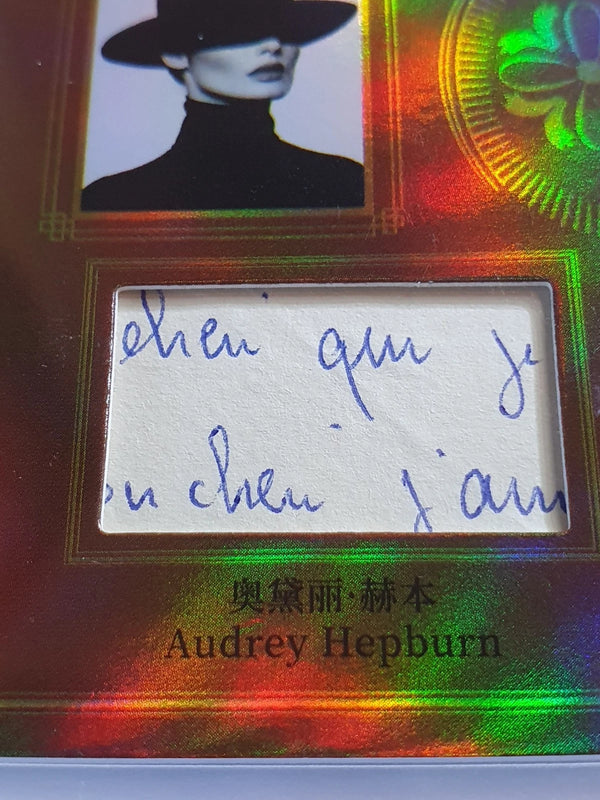 chien qui j
on chien j'aim
奥黛丽·赫本
Audrey Hepburn